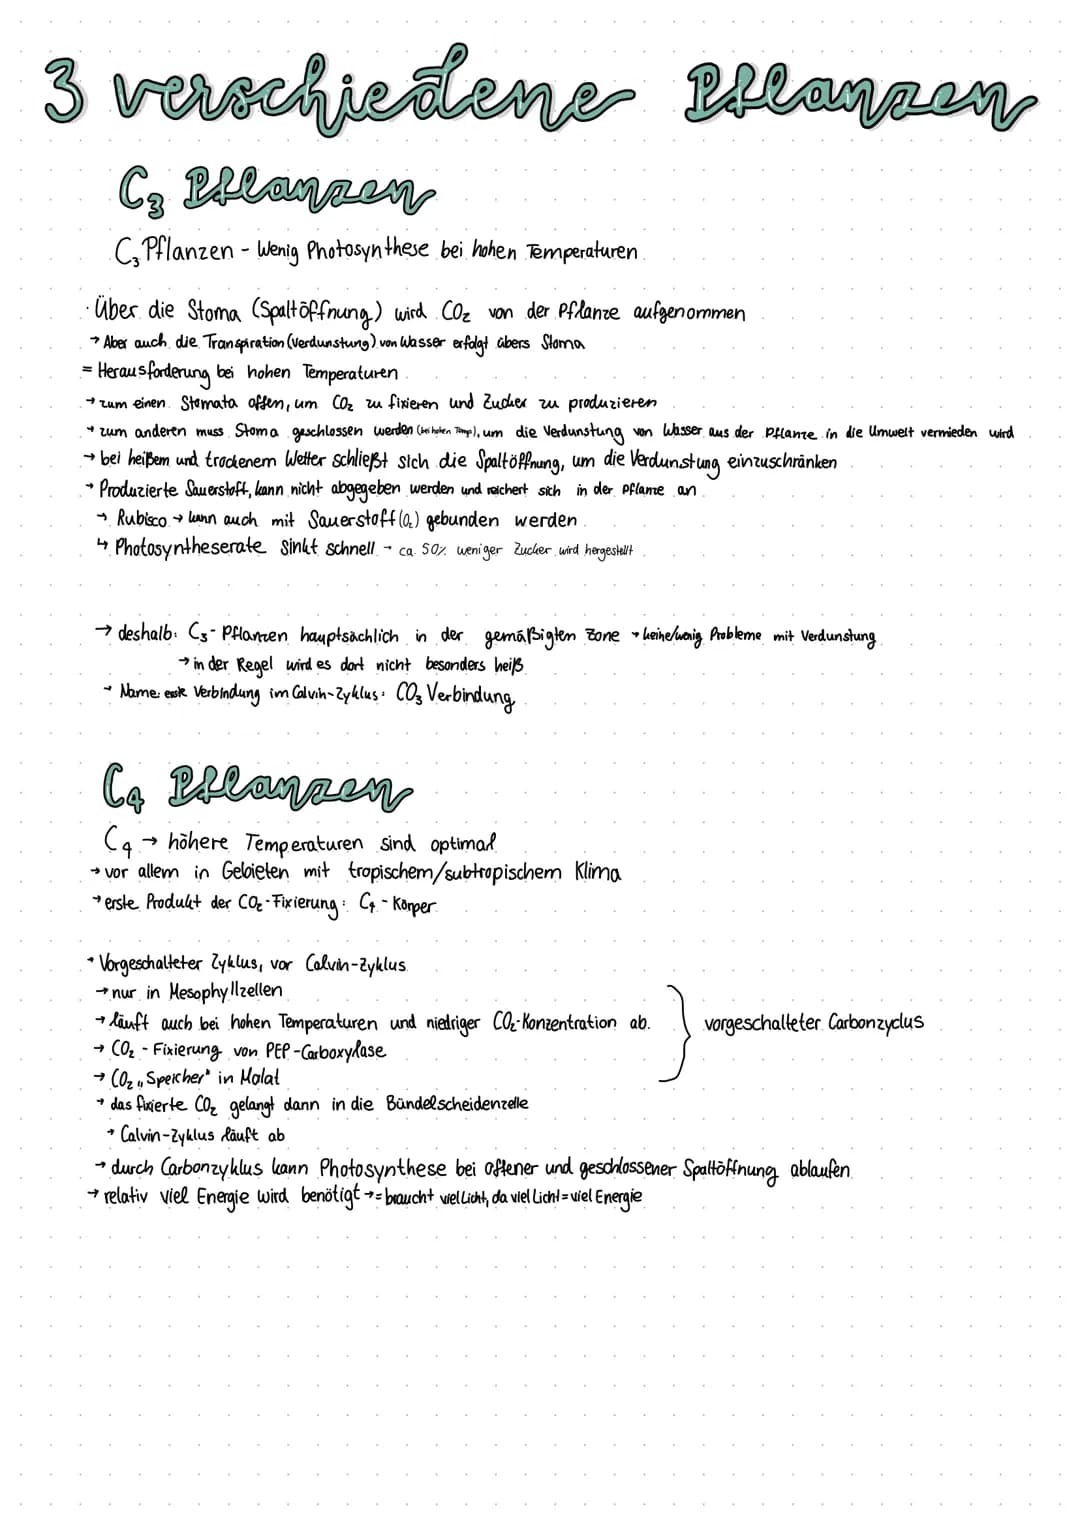 3 verschiedene Pflanzen
C3 Pflanzen
C3 Pflanzen - Wenig Photosynthese bei hohen Temperaturen
· Über die Stoma (Spaltöffnung) wird CO2 von der Pflanze aufgenommen
→ Aber auch die Transpiration (Verdunstung) von Wasser erfolgt übers Stoma
= Herausforderung bei hohen Temperaturen
→ zum einen Stomata offen, um CO2 zu fixieren und Zucker zu produzieren
→ zum anderen muss Stoma geschlossen werden (bei hohen Temp.), um die Verdunstung von Wasser aus der Pflanze in die Umwelt vermieden wird
→ bei heißem und trockenem Wetter schließt sich die Spaltöffnung, um die Verdunstung einzuschränken
→ Produzierte Sauerstoff, kann nicht abgegeben werden und reichert sich in der Pflanze an
→ Rubisco → kann auch mit Sauerstoff (O2) gebunden werden
↳ Photosyntheserate sinkt schnell → ca. 50% weniger Zucker wird hergestellt
→ deshalb: C3- Pflanzen hauptsächlich in der gemäßigten Zone → keine/wenig Probleme mit Verdunstung
→ in der Regel wird es dort nicht besonders heiß
→ Name: erste Verbindung im Calvin-Zyklus: CO3 Verbindung
C4 Pflanzen
C4 → höhere Temperaturen sind optimal
→ vor allem in Gebieten mit tropischem/subtropischem Klima
→ erste Produkt der CO2-Fixierung: C4 - Körper
· Vorgeschalteter Zyklus, vor Calvin-Zyklus
→ nur in Mesophyllzellen
→ läuft auch bei hohen Temperaturen und niedriger CO2-Konzentration ab. } vorgeschalteter Carbonzyclus
→ CO2 - Fixierung von PEP-Carboxylase
→ CO2 „Speicher" in Malat
→ das fixierte CO2 gelangt dann in die Bündelscheidenzelle
→ Calvin-Zyklus läuft ab
→ durch Carbonzyklus kann Photosynthese bei offener und geschlossener Spaltöffnung ablaufen
→ relativ viel Energie wird benötigt → = braucht viel Licht, da viel Licht = viel Energie